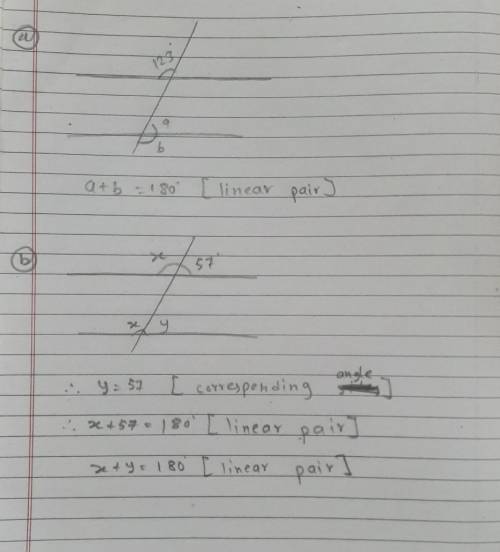 a
123°
a
b
a + b = 180° [linear pair]
b
x 57°
x y
∴ y = 57 [corresponding angle]
∴ x + 57 = 180° [linear pair]
x + y = 180° [linear pair]